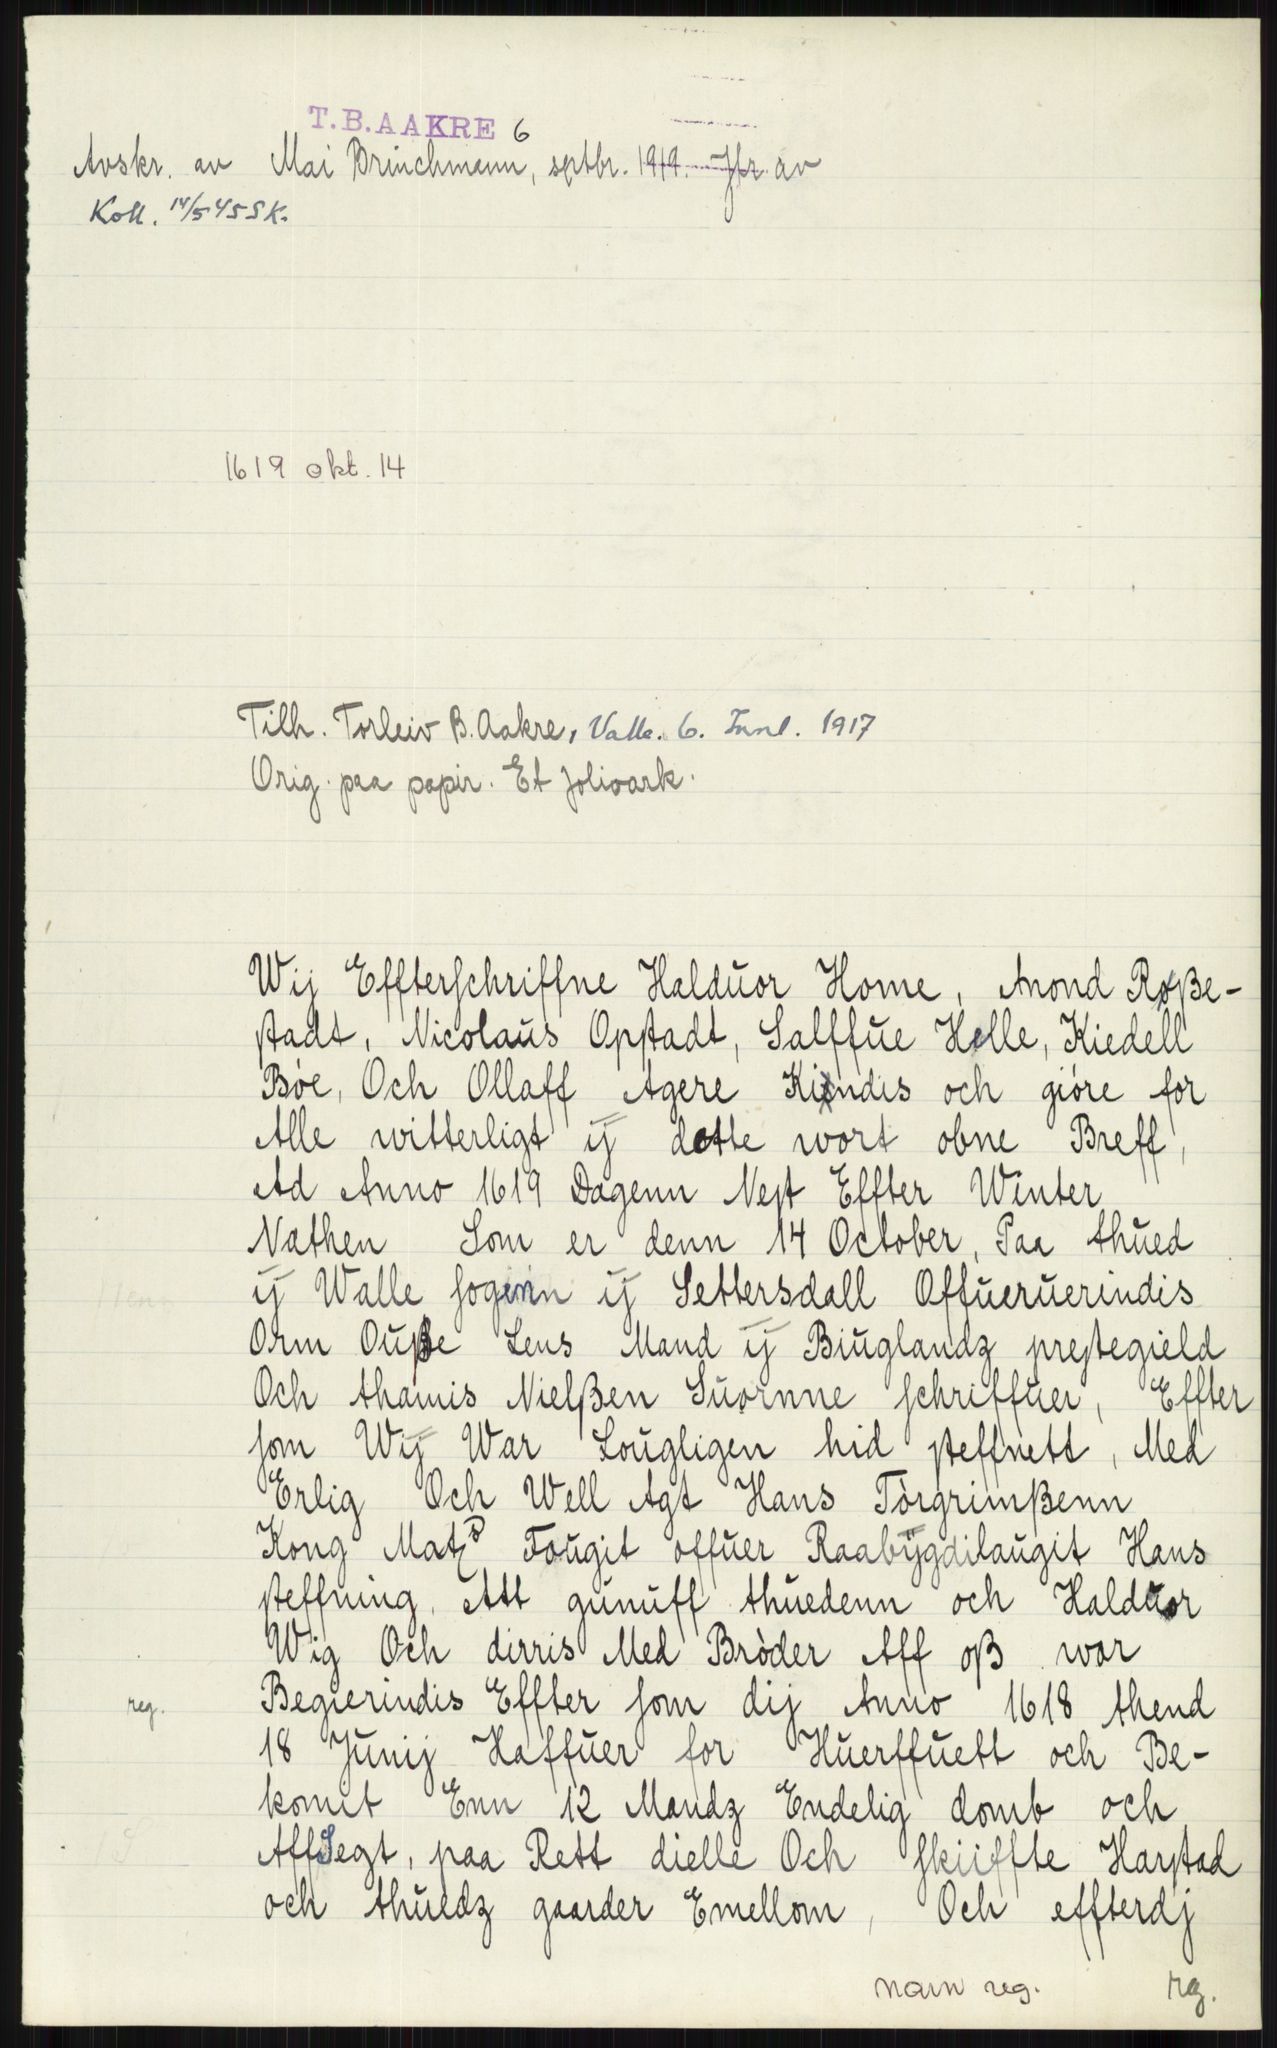 T.B.AAKRE 6
Avskr. av Mai Brinchmann, sptbr. 1919. Jfr. av
Koll. 14/5 45 SK.
1619 okt. 14
Tilh. Torleiv B. Aakre, Valle. 6. Innl. 1917
Orig. paa papir. Et folioark.
Wij Effterschriffne Halduor Home, Anond Roße-
stadt, Nicolaus Opstadt, Salffue Helle, Kiedell
Bóe, Och Ollaff Agere Kiendis och gióre for
Alle witterligt ij dette wort obne Breff,
Ad Anno 1619 Dagenn Nest Effter Winter
Nathen Som er denn 14 October, Paa thued
ij Walle sogenn ij Settersdall Offueruerindis
Orm Ouße Lens Mand ij Biuglandz prestegield
Och thamis Nielßen Suornne schriffuer, Effter
som Wij War Lougligen hid steffnett, Med
Erlig Och Well Agt Hans Tòrgrimßenn
Kong Matz Fougit offuer Raabygdilaugit Hans
steffning, Att gunuff thuedenn och Halduor
Wig Och dirris Med Bròder Aff oß war
Begierindis Effter som dij Anno 1618 thend
reg.
18 Junij Haffuer for Huerffuett och Be-
komit Enn 12 Mandz Endelig domb och
AffSegt, paa Rett dielle Och skiiffte Harstad
och thuedz gaarder Emellom, Och effterdj
navn reg. rg.